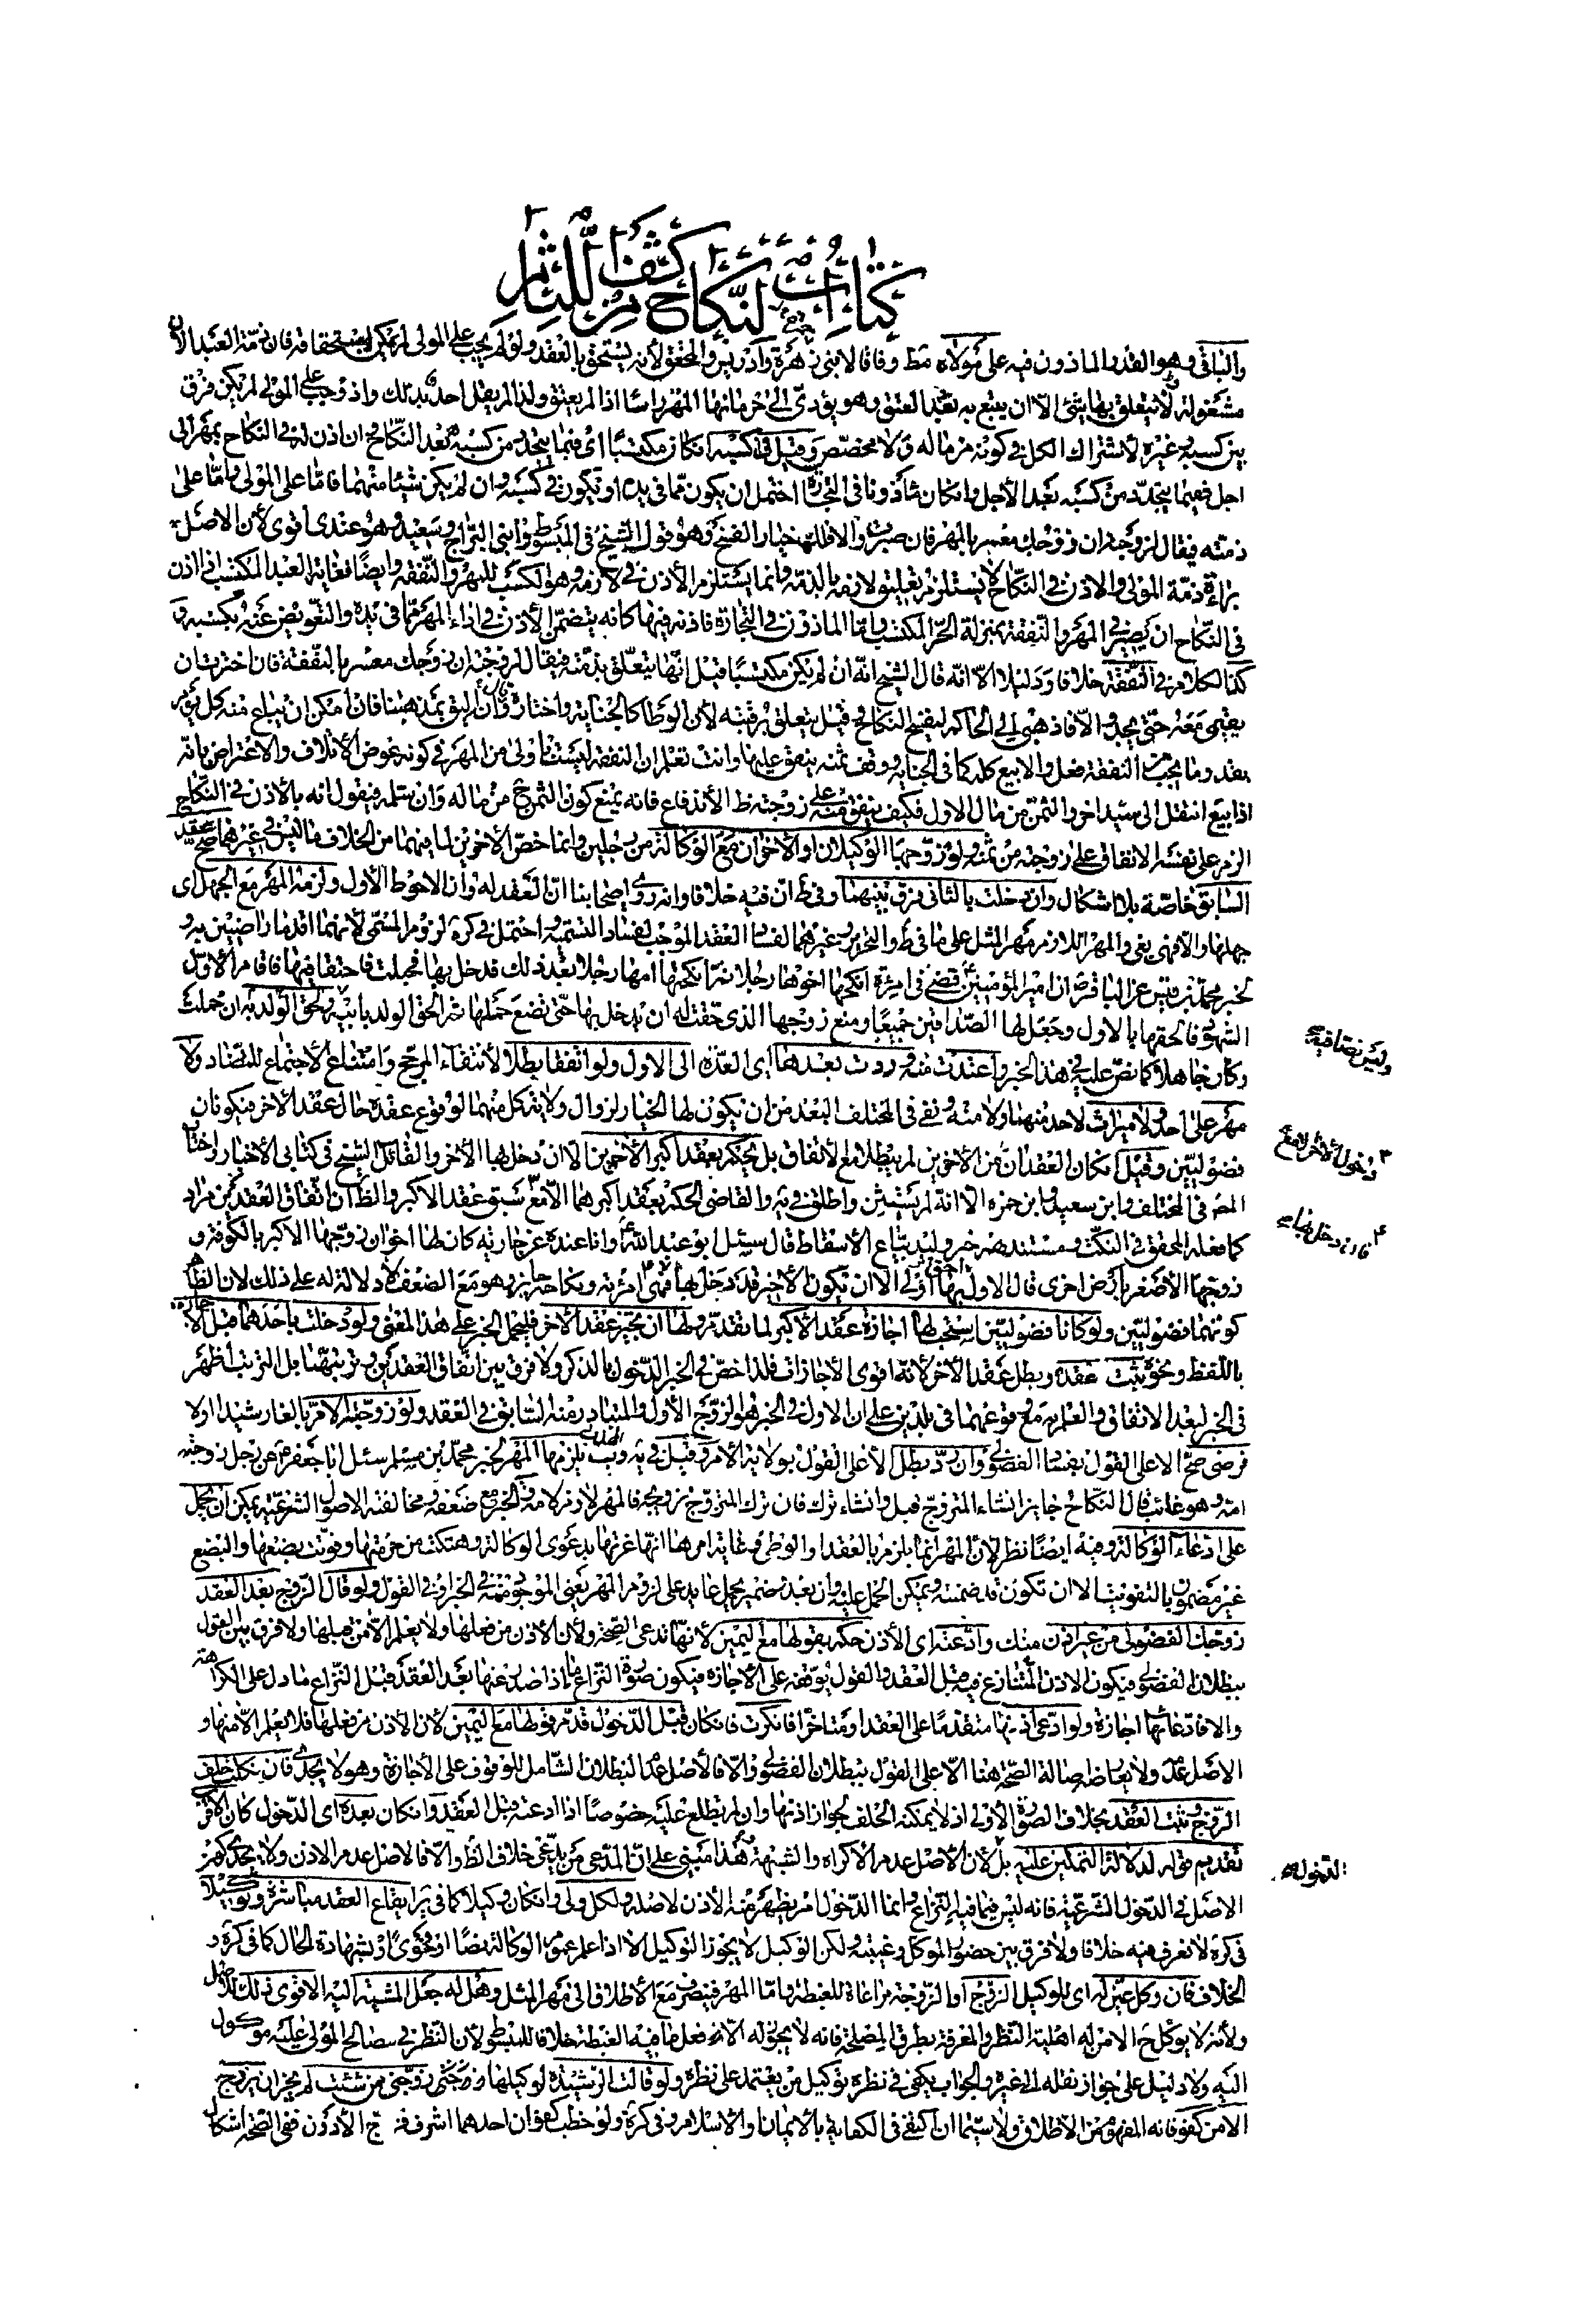 كتاب النكاح من كشف اللثام
والباقي وهو القدر الماذون فيه على مولاه مط وفاقا لابني زهرة وادريس والمحقق لأنه يستحق بالعقد ولو لم يجب على المولى لم يكن لمستحقا فان ذمة العبد الان
مشغولة لا يتعلق بها شئ الا ان يتبع به بعد العتق وهو يؤدى الى حرمانها المهر راسا اذا لم يعتق ولذا لم يقل احد بذلك واذ وجب على المولى لم يكن فرق
بين كسبه وغيره لاشتراك الكل في كونه من ماله ولا مخصص وقيل في كسبه ان كان مكتسبا اى فيما يتجدد من كسبه بعد النكاح ان اذن له في النكاح بمهر الى
اجل ففيما يتجدد من كسبه بعد الأجل وان كان ماذونا في التجارة احتمل ان يكون مما في يده او تكون في كسبه وان لم يكن شيئا منهما فاما على المولى واما على
ذمته فيقال لزوجته ان زوجك معسر بالمهر فان صبرت والا فلك خيار الفسخ وهو قول الشيخ في المبسوط وابنى البراج وسعيد وهو عندى اقوى لأن الاصل
براءة ذمة المولى والاذن في النكاح لا يستلزم تعليق لازمه بالذمة وانما يستلزم الأذن في لازمه وهو الكسب للمهر والنفقة وايضا فغاية العبد المكتسب اذا اذن
في النكاح ان يصير في المهر والنفقة بمنزلة الحر المكتسب واما الماذون في التجارة فاذنه فيها كانه يتضمن الأذن في اداء المهر مما في يده والتعويض عنه بكسبه و
كذا الكلام في النفقة خلافا ودليلا الا انه قال الشيخ انه ان لم يكن مكتسبا قيل انها يتعلق بذمته فيقال لزوجته ان زوجك معسر بالنفقة فان اخترت ان
يقيمى معه حتى يجد والا فاذهبى الى الحاكم ليفسخ النكاح وقيل يتعلق برقبته لأن الوطا كالجناية واختاره وقال انه اليق بمذهبنا فان امكن ان يباع منه كل يوم
بقدر ما يجب من النفقة فعل والا بيع كله كما في الجناية ووقف ثمنه ينفق عليها وانت تعلم ان النفقة ليست باولى من المهر في كونه عوض الاتلاف والاعتراض بانه
اذا بيع انتقل الى سيد اخر والثمن من مال الاول فكيف ينفق منه على زوجته ظ الأندفاع فانه يمنع كون الثمن ح من ماله وان سلم فيقول انه بالأذن في النكاح
الزم على نفسه الانفاق على زوجته من ثمنه ولو زوجها الوكيلان او الأخوان مع الوكالة من رجلين وانما خص الأخوين لما فيهما من الخلاف ما ليس في غيرهما صح عقد
السابق خاصة بلا اشكال وان دخلت بالثانى فرق بينهما وفي ط ان فيه خلافا وانه روى اصحابنا ان العقد له وان الاحوط الأول ولزمه المهر مع الجهل اى
جهلها والا فهى بغى والمهر اللازم مهر المثل على ما في ط والتحرير وغيرهما لفساد العقد الموجب لفساد التسمية واحتمل في كره لزوم المسمى لأنهما اقدما راضيين به و
لخبر محمد بن قيس عن الباقر ع ان امير المؤمنين ع قضى في امرءة انكحها اخوها رجلا ثم انكحتها امها رجلا بعد ذلك فدخل بها فحملت فاحتقا فيها فاقام الأول
الشهود فالحقها بالاول وجعل لها الصداقين جميعا ومنع زوجها الذى حقت له ان يدخل بها حتى تضع حملها ثم الحق الولد بابيه ولحق الولد به ان حملت
وكان جاهلا كما نص عليه في هذا الخبر واعتدت منه ثم ردت بعدها اى العدة الى الاول ولو اتفقا بطلا لأنتفاء المرجح وامتناع الأجتماع للتضاد ولا
مهر على احد ولا ميراث لاحد منهما ولا منه ونفى في المختلف البعد من ان يكون لها الخيار لزوال ولاية كل منهما لوقوع عقده حال عقد الأخر فيكونان
فضوليين وقيل ان كان العقدان من الأخوين لم يبطلا مع الأتفاق بل يحكم بعقد اكبر الأخوين الا ان دخل بها الأخر والقائل الشيخ في كتابى الأخبار واختاره
المص في المختلف وابن سعيد وابن حمزه الا انه لم يستثن واطلق في يه والقاضى الحكم بعقد اكبرهما الا مع سبق عقد الاكبر والظ ان اتفاق العقدين مراد
كما فعله المحقق في النكت ومستندهم خبر وليد بياع الأسفاط قال سئل ابو عبد الله ع وانا عنده عن جارية كان لها اخوان زوجها الاكبر بالكوفة و
زوجها الأصغر بارض اخرى قال الاول بها اولى الا ان تكون الأخير قد دخل بها فهى امرئته ونكاحه جايز وهو مع الضعف لا دلالة له على ذلك لان الظاهر
كونهما فضوليين ولو كانا فضوليين استحب لها اجازة عقد الأكبر لما تقدم ولها ان تجيز عقد الأخر فليحمل الخبر على هذا المعنى ولو دخلت باحدهما قبل الأجازة
باللفظ ونحوه ثبت عقده وبطل عقد الأخر لأنه اقوى الأجازات فلذا خص في الخبر الدخول بالذكر ولا فرق بين اتفاق العقدين وترتبهما بل الترتب اظهر
في الخبر لبعد الاتفاق والعلم به مع وقوعهما في بلدين على ان الاول في الخبر هو الزوج الأول والمتبادر منه السابق في العقد ولو زوجته الام بالغا رشيدا او لا
فرضى صح الا على القول بفساد الفضولى وان رد بطل الا على القول بولاية الأم وقيل في يه ويب يلزمها المهر لخبر محمد بن مسلم سئل ابا جعفر ع عن رجل زوجته
امه وهو غائب قال النكاح جايز ان شاء المتزوج قبل وان شاء ترك فان ترك المتزوج تزويجه فالمهر لازم لامه والخبر مع ضعفه ومخالفته الاصول الشرعية يمكن ان يحمل
على ادعاء الوكالة وفيه ايضا نظر لان المهر انما يلزم بالعقد او الوطى وغاية امرها انها غرتها بدعوى الوكالة وهتكت من حرمتها وفوتت بضعها والبضع
غير مضمون بالتفويت الا ان تكون قد ضمنته ويمكن الحمل عليه وان بعد ضمير يحمل عايد على لزوم المهر يعنى الموجود منه في الخبر او في القول ولو قال الزوج بعد العقد
زوجك الفضولى من غير اذن منك وادعته اى الأذن حكم بقولها مع اليمين لانها تدعى الصحة ولأن الأذن من فعلها ولا يعلم الا من قبلها ولا فرق بين القول
ببطلان الفضولى فيكون الاذن المتنازع فيه قبل العقد والقول بوقفه على الأجازه فيكون صورة النزاع ما اذا صدر عنها بعد العقد قبل النزاع ما دل على الكراهته
والا فادعائها اجازة ولو ادعى اذنها متقدما على العقد او متاخرا فانكرت فان كان قبل الدخول قدم قولها مع اليمين لان الأذن من فعلها فلا يعلم الا منها و
الاصل عدمه ولا يعارضه اصالة الصحة هنا الا على القول ببطلان الفضولى والا فالأصل عدم البطلان الشامل للوقوف على الأجازة وهو لا يجدى فان نكلت حلف
الزوج وثبت العقد بخلاف الصورة الأولى اذ لا يمكنه الحلف لجواز اذنها وان لم يطلع عليه خصوصا اذا ادعته قبل العقد وان كان بعده اى الدخول كان الأقرب
تقديم قوله لدلالة التمكين عليه بل لأن الأصل عدم الاكراه والشبهة وهذا مبنى على ان المدعى من يدعى خلاف الظ والا فالاصل عدم الاذن ولا يجدى كون
الاصل في الدخول الشرعية فانه ليس فيما فيه النزاع وانما الدخول امر يظهر منه الأذن لاصله ولكل ولى وان كان وكيلا كما في ير ايقاع العقد مباشرة وتوكيلا
في كره لا نعرف فيه خلافا ولا فرق بين حضور الموكل وغيبته ولكن الوكيل لا يجوز له التوكيل الا اذا علم عموم الوكالة نصا او فحوى او بشهادة الحال كما في كره و
الخلاف فان وكل عين له اى للوكيل الزوج او الزوجة مراعاة للغبطة واما المهر فينصرف مع الأطلاق الى مهر المثل وهل له جعل المشيئة اليه الاقوى ذلك للاصل
ولأنه لا يوكل ح الا من له اهلية النظر والمعرفة بطرق المصلحة فانه لا يجوز له الا فعل ما فيه الغبطة خلافا للمبسوط لأن النظر في مصالح المولى عليه موكول
اليه ولا دليل على جواز نقله الى غيره والجواب يكفى في نظره توكيل من يعتمد على نظره ولو قالت الرشيدة لوكيلها زوجنى ممن شئت لم يجز ان يزوج
الا من كفو فانه المفهوم من الاطلاق ولا سيما ان اكتفى في الكفاية بالايمان والأسلام وفي كره ولو خطب كفوان احدهما اشرف فزوج الأدون ففي الصحة اشكال
وليس نصا فيه
دخول الأخر لا مع
فان دخل بها
الدخول